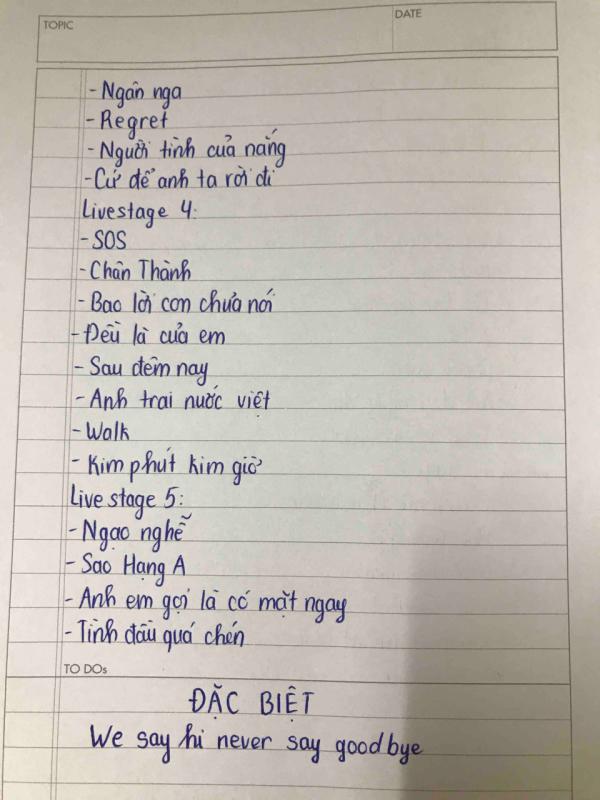 TOPIC
DATE
- Ngân nga
- Regret
- Người tình của nắng
- Cứ để anh ta rời đi
Livestage 4:
- SOS
- Chân Thành
- Bao lời con chưa nói
- Đều là của em
- Sau đêm nay
- Anh trai nước việt
- Walk
- Kim phút kim giờ
Live stage 5:
- Ngạo nghễ
- Sao Hạng A
- Anh em gọi là có mặt ngay
- Tình đầu quá chén
TO DOs
ĐẶC BIỆT
We say hi never say goodbye